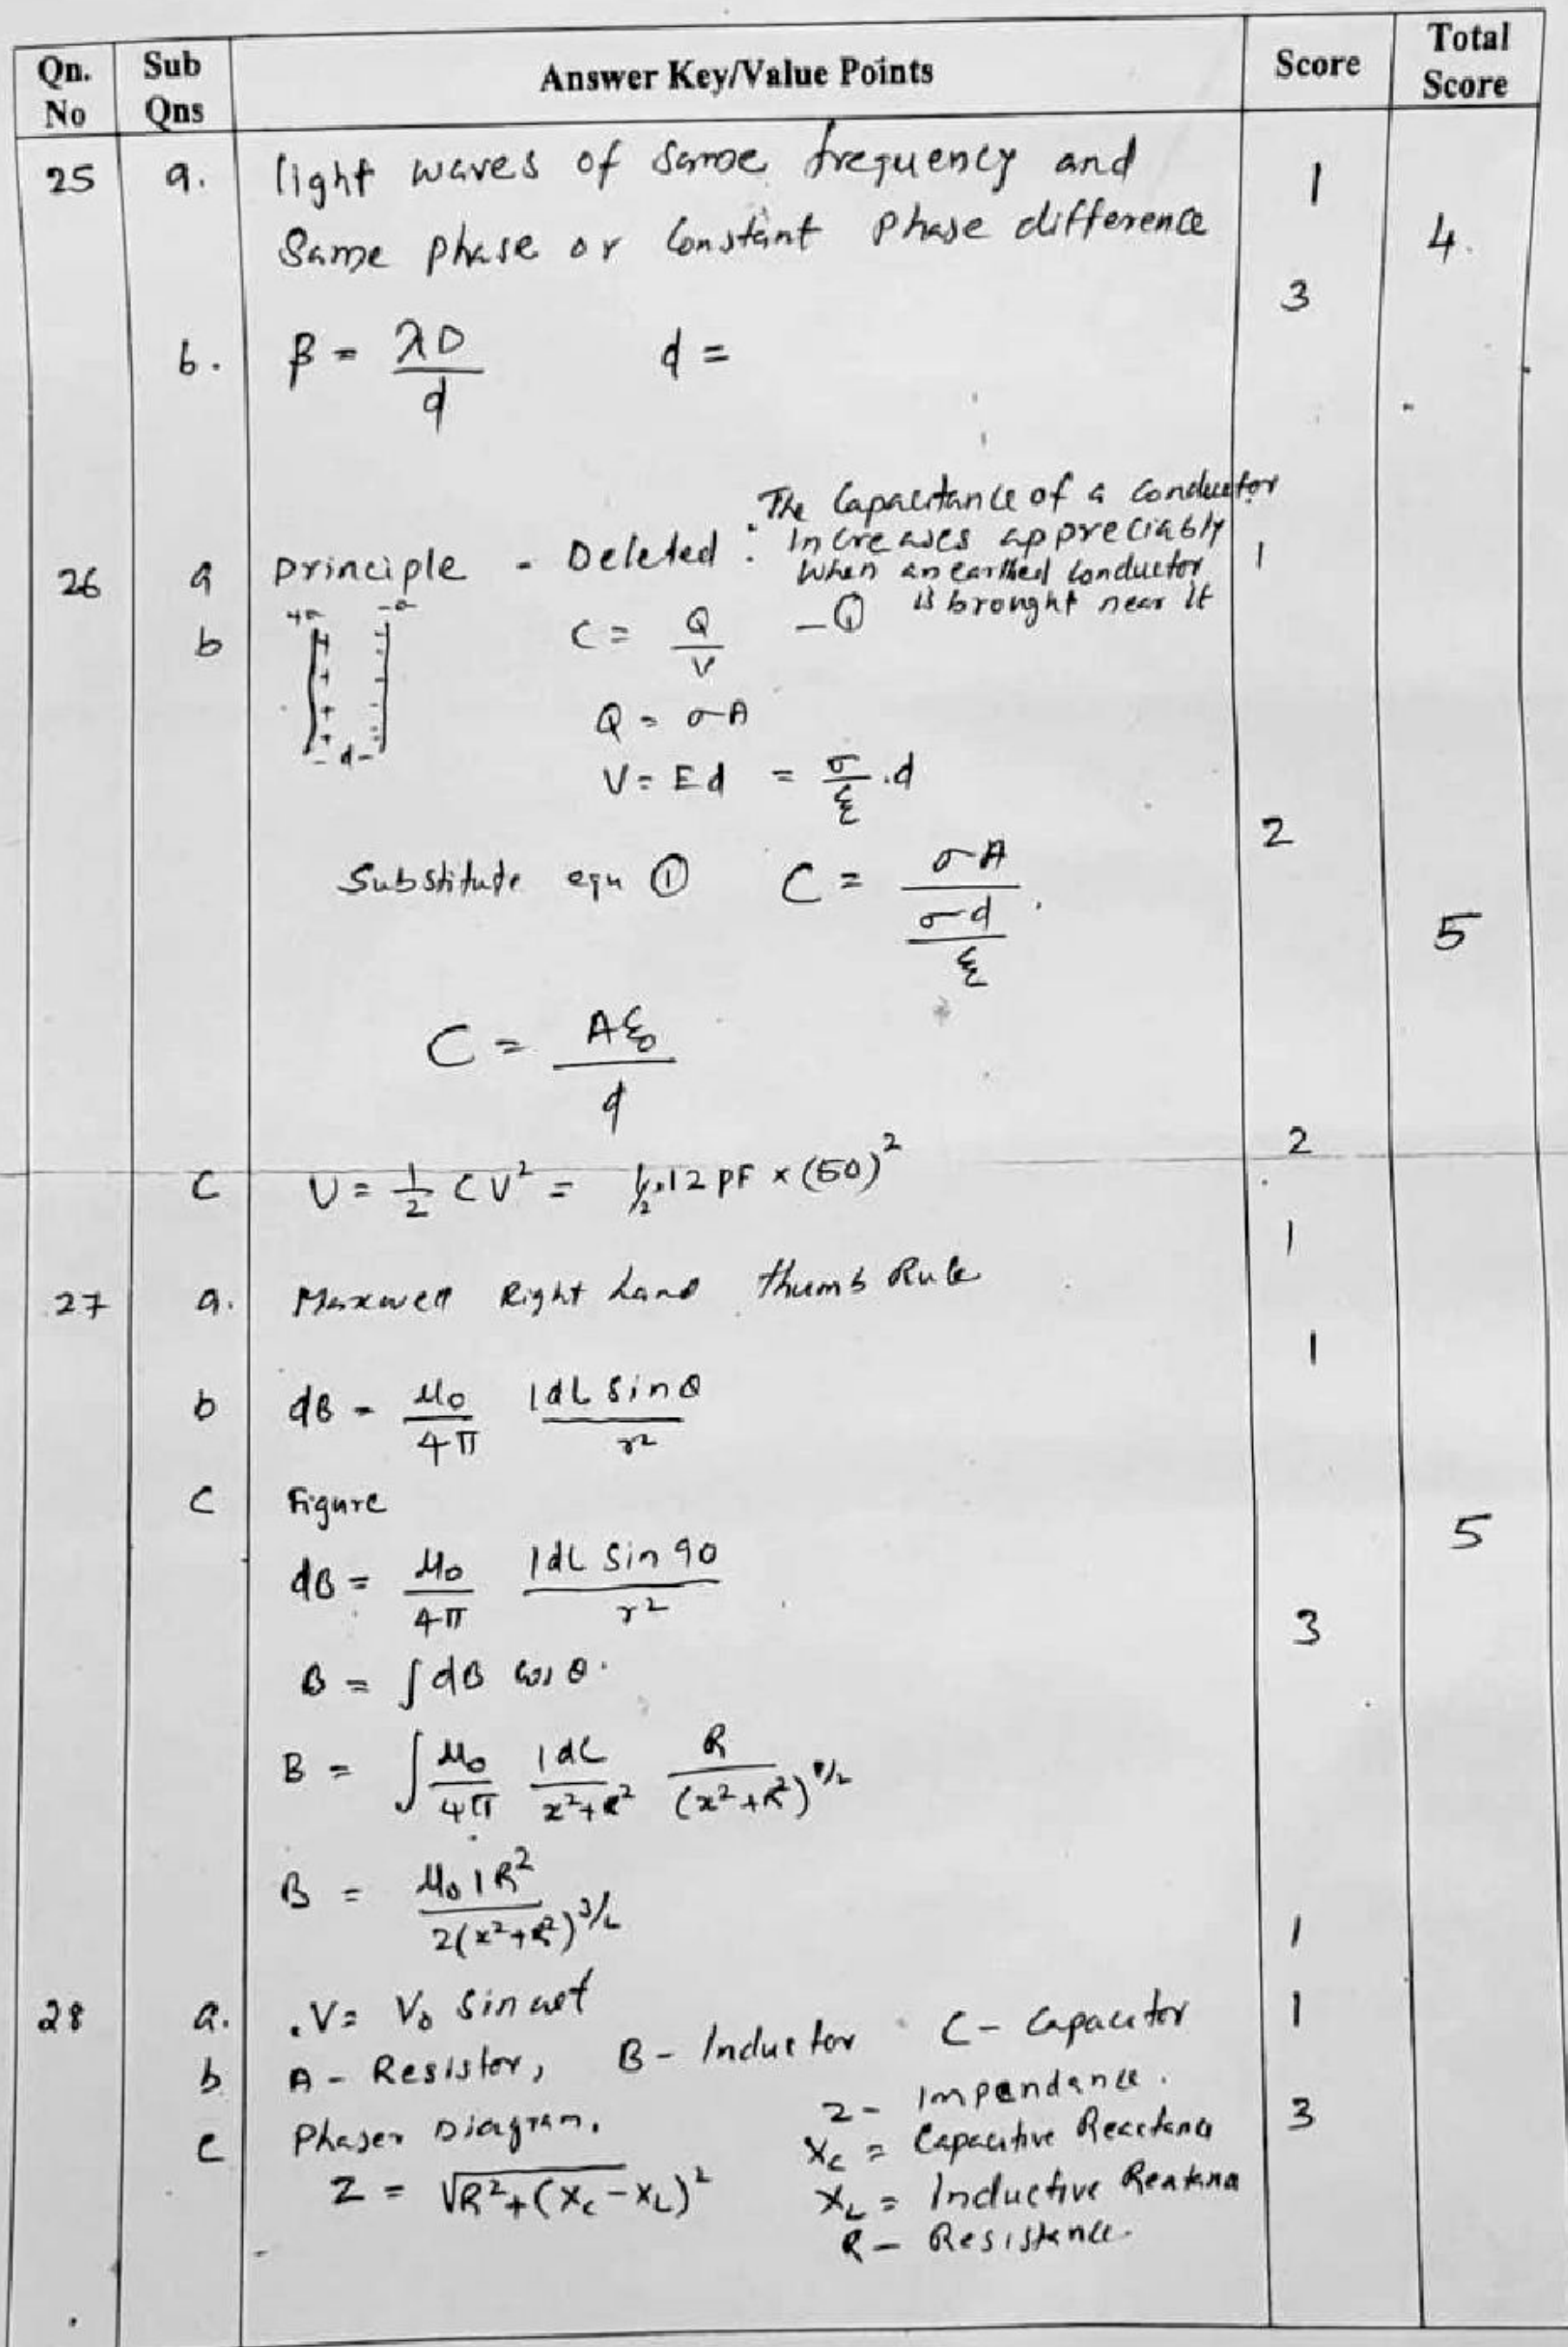 Qn. No Sub Qns Answer Key/Value Points Score Total Score
25 a. light waves of same frequency and 1
Same phase or Constant Phase difference 4.
3
b. β = λD/d d =
The Capacitance of a conductor
26 a Principle - Deleted : Increases appreciably 1
when an earthed conductor
is brought near it
b C = Q/V -①
+ + + +
- d -
Q = σA
V = Ed = σ/ε .d
2
Substitute equ ① C = σA / (σd/ε) .
5
C = Aε₀/d
2
C U = 1/2 CV² = 1/2 × 12 PF × (50)²
1
27 a. Maxwell Right hand thumb Rule
1
b dB = μ₀/4π IdL sinθ/r²
C Figure
5
dB = μ₀/4π IdL sin 90/r²
3
B = ∫dB cos θ.
B = ∫ μ₀/4π IdL/x²+R² R/(x²+R²)^1/2
B = μ₀IR²/2(x²+R²)^3/2
1
28 a. V = V₀ sin ωt
b A - Resistor, B - Inductor C - Capacitor 1
C Phaser Diagram. Z - Impendance.
Xc = Capacitive Reactana 3
Z = √R²+(Xc-XL)² XL = Inductive Reatana
R - Resistance.